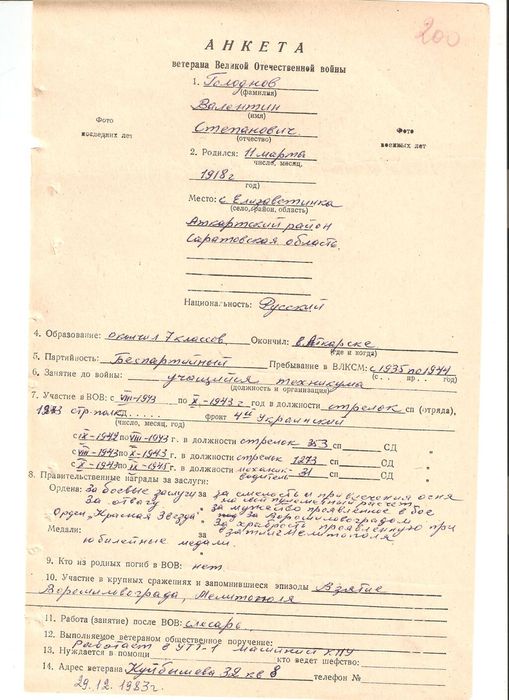 200
АНКЕТА
ветерана Великой Отечественной войны
1. Голоднов
(фамилия)
Валентин
(имя)
Степанович.
(отчество)
Фото
последних лет
Фото
военных лет
2. Родился: 11 марта
число, месяц,
1918 г
год)
Место: с Елизаветинка
(село, район, область)
Аткарский район
Саратовская область.
Национальность: Русский
4. Образование: окончил 7 классов. Окончил: в Аткарске
(где и когда)
5. Партийность: Беспартийный Пребывание в ВЛКСМ: с 1935 по 1944
(с . . . пр . . . год)
6. Занятие до войны: учащийся техникума
(должность и организация)
7. Участие в ВОВ: с VIII-1943 по X-1943 г год в должности стрелок сп (отряда),
1273 стр. полк СД фронт 4й Украинский
(число, месяц, год)
с IX-1942 по VIII-1943 г. в должности стрелок 353 сп СД "
с VIII-1943 по X-1943 г. в должности стрелок 1273 сп СД "
с X-1943 по IX-1945 г. в должности механик- 31 сп СД "
водитель
8. Правительственные награды за заслуги:
Ордена: За боевые заслуги за за смелость и привлечения огня
на свой пулеметный расчет
За отвагу " за мужество проявленное в бое
под за Ворошиловградом
Орден "Красная Звезда" " За храбрость проявленную при
Медали: за взятие Мелитополя
юбилейные медали. "
9. Кто из родных погиб в ВОВ: нет.
10. Участие в крупных сражениях и запомнившиеся эпизоды Взятие
Ворошиловграда, Мелитополя
11. Работа (занятие) после ВОВ: слесарь.
12. Выполняемое ветераном общественное поручение:
Работает в УТТ-1 машинист ППУ
13. Нуждается в помощи кто ведет шефство:
14. Адрес ветерана Куйбышева 32 кв 8 телефон №
29.12.1983 г.